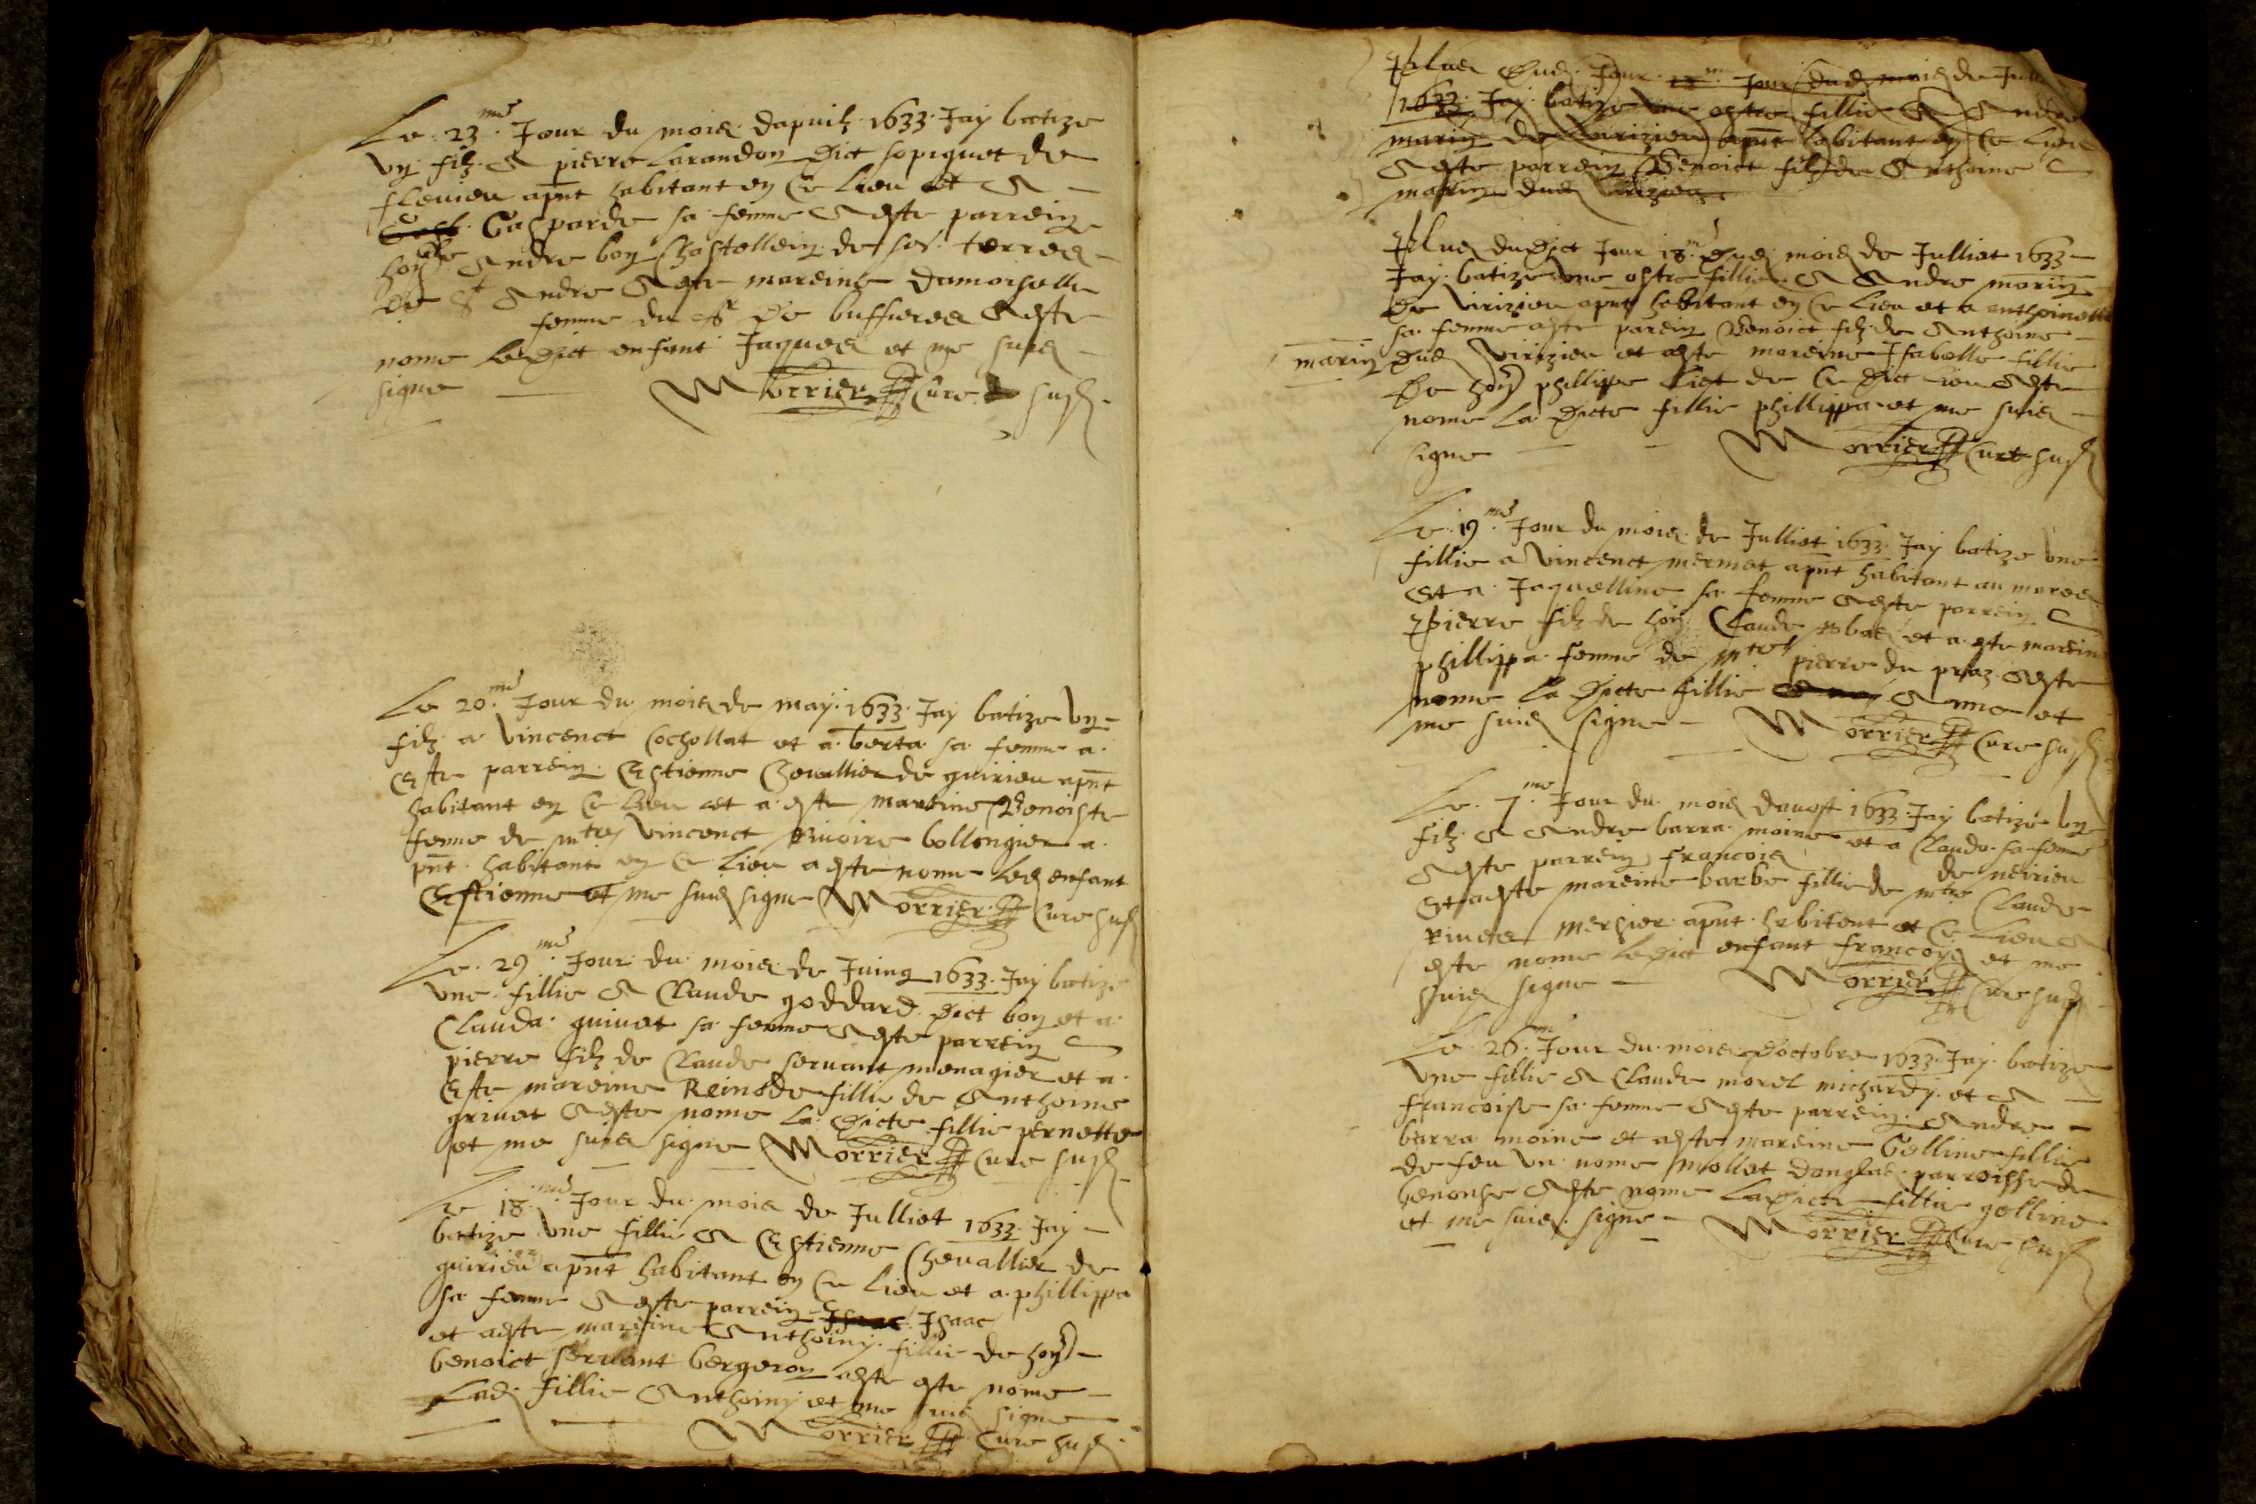 Le 23.me Jour du mois dapvril 1633 Jay batize
vn filz a pierre larandon dict sopiquet de
flevieu apnt habitant en ce lieu et a
Gasparde sa femme a este parrein
hon.ble Andre bon Chastellein de ses terres
de St Andre a este mareine damoiselle
femme du Sr de buffieres a este
nome ledict enfant Jaques et me suis
signe Morrier Cure susd.
Le 20.me Jour du mois de may 1633 Jay batize vn
filz a vincenct Cochollat et a berta sa femme a
este parrein Estienne Chevallier de quirieu apnt
habitant en ce lieu et a este mareine Benoiste
femme de mtre vincenct rivoire bollongier a
pnt habitant en ce lieu a este nome led enfant
Estienne et me suis signe Morrier Cure susd
Le 29.me Jour du mois de Juing 1633 Jay batize
vne fillie a Claude goddard dict bon et a
Clauda guivet sa femme a este parrein
pierre filz de Claude servant menagier et a
este mareine Reinode fillie de Anthoine
grivet a este nome la dicte fillie pernette
et me suis signe Morrier Cure susd
Le 18.me Jour du mois de Julliet 1633 Jay
batize vne fillie a Estienne Chevallier de
quirieu apnt habitant en ce lieu et a phillippa
sa femme a este parrein Isaac Isaac
et a este mareine Anthoiny fillie de hon
benoict servant bergeron a este este nome
Lad. fillie Anthoiny et me suis signe
Morrier Cure susd.
Plus dud. Jour 18.m Jour dud. mois de Jull
1633 Jay batize vne ostre fillie a Andre
marin de virizieu apnt habitant en ce lieu
a este parrein Benoict filz de Anthoine
marin dud virizieu
Plus dudict Jour 18.me dud. mois de Julliet 1633
Jay batize vne ostre fillie a Andre marin
de virizieu apnt habitant en ce lieu et a anthoinette
sa femme a este parein Benoict filz de Anthoine
marin dud virizieu et a este mareine Isabelle fillie
de hon phillippe liet de ce dict lieu a este
nome la dicte fillie phillippa et me suis
signe Morrier Cure susd
Le 19.me Jour du mois de Julliet 1633 Jay batize vne
fillie a vincenct mermet apnt habitant au mares
et a Jaquelline sa femme a este parrein
Pierre filz de hon Claude et a este mareine
phillippa femme de mtre pierre du praz a este
nome la dicte fillie Anne et
me suis signe Morrier Cure susd
Le 7.me Jour du mois davost 1633 Jay batize vn
filz a Andre barra moine et a Clauda sa femme
a este parrein francois de neirieu
et a este mareine barbe fillie de mtre Claude
Rivets mersier apnt habitent et ce lieu a
este nome ledict enfant francoys et me
suis signe Morrier Cure susd
Le 26.m Jour du mois doctobre 1633 Jay batize
vne fillie a Claude morel michardy et a
francoise sa femme a este parrein Andre
barra moine et a este mareine Gelline fillie
de feu vn nome mollet parroisse de
benonse a este nome ladicte fillie gelline
et me suis signe Morrier Cure susd